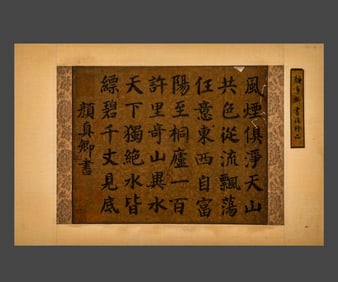 風煙俱淨天山
共色從流飄蕩
任意東西自富
陽至桐廬一百
許里奇山異水
天下獨絕水皆
縹碧千丈見底
顏真卿書